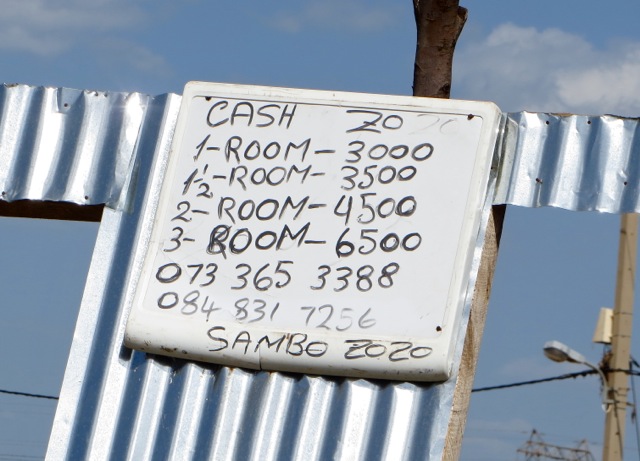 CASH ZOZO
1-ROOM-3000
1½-ROOM-3500
2-ROOM-4500
3-ROOM-6500
073 365 3388
084 831 7256
SAMBO ZOZO